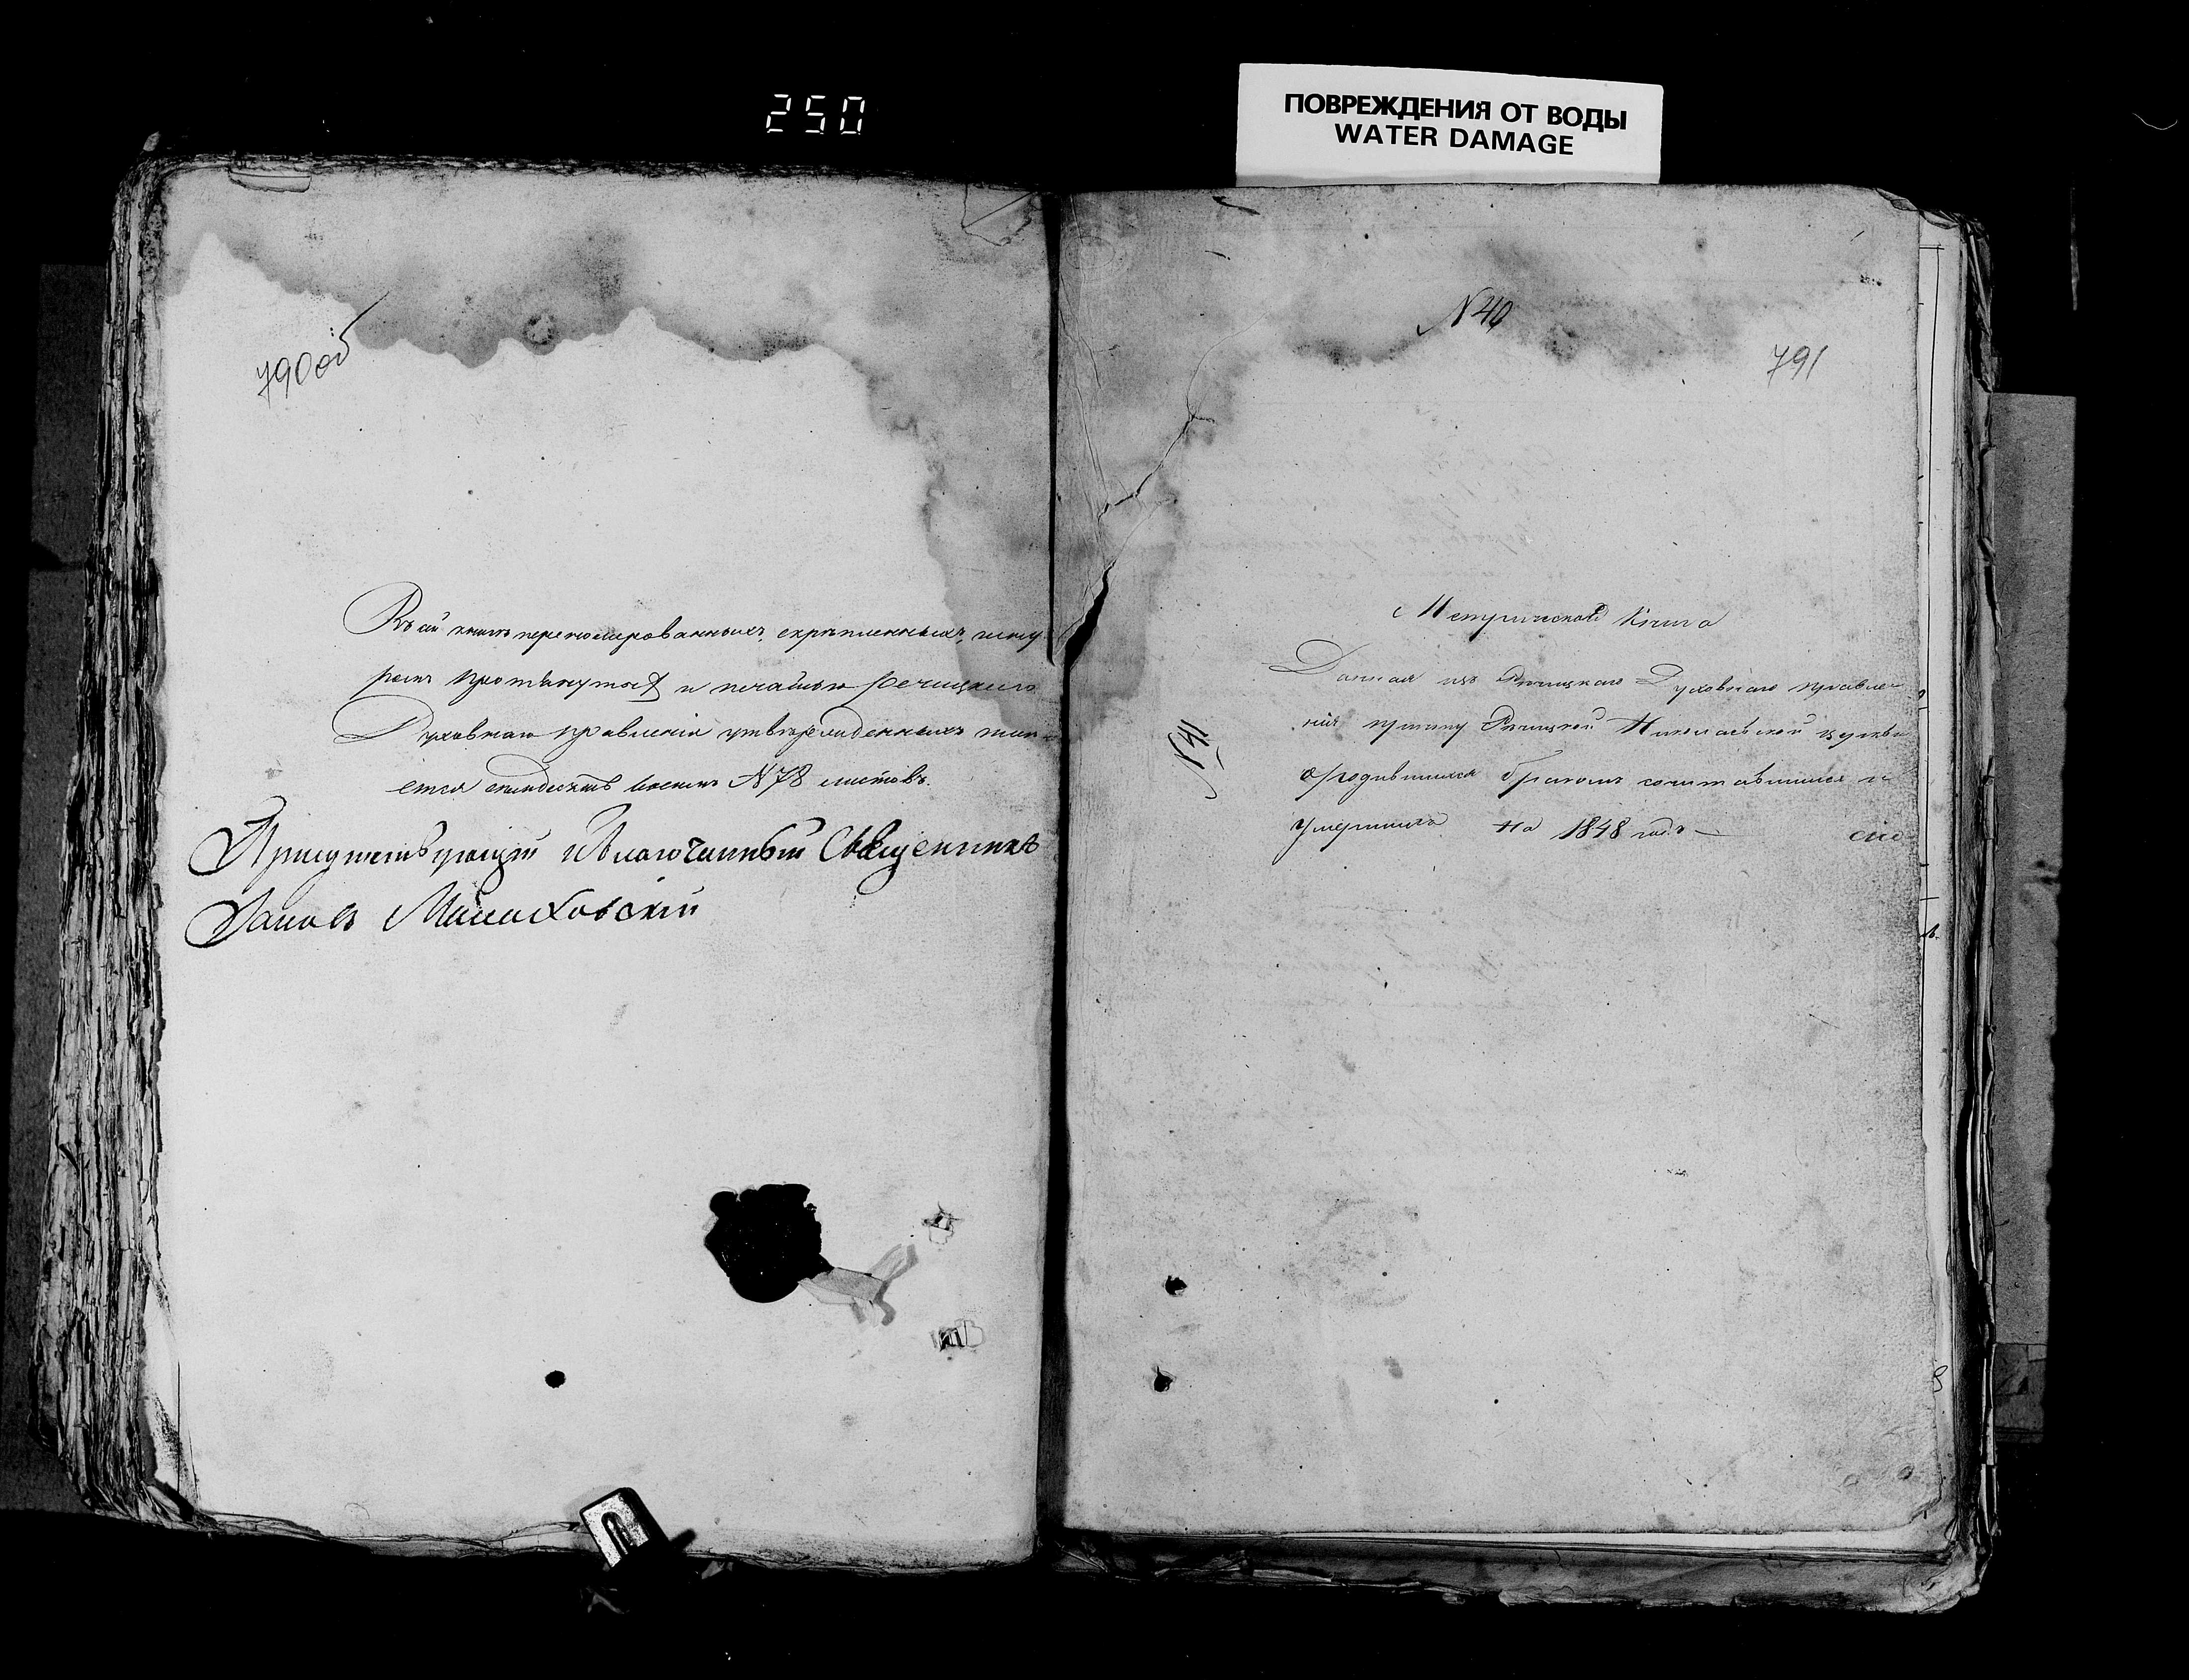 250
ПОВРЕЖДЕНИЯ ОТ ВОДЫ
WATER DAMAGE
790 об
Въ сей книгѣ перенумерованныхъ, скрепленныхъ, шну
ромъ протянутыхъ и печатью Речицкаго
Духовнаго правленія утвержденныхъ
ется семдесятъ восемь №78 листовъ.
Присутствующій Благочинный Священникъ
Іаковъ
N 40
791
N 41
Метрической Книга
Данная изъ Речицкаго Духовнаго правле
нія причту Речицкой Николаевской церкви
о родившихся бракомъ сочетавшихся и
умершихъ на 1848 годъ —